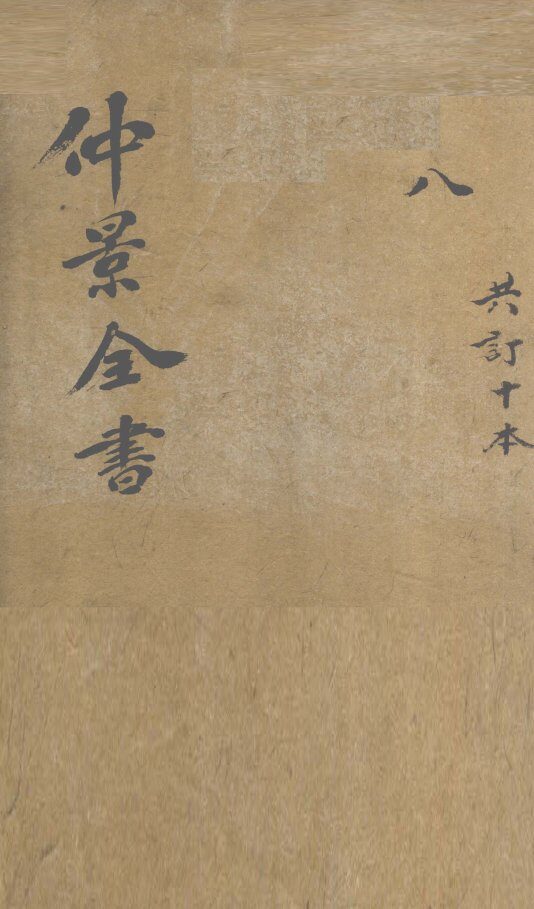 共訂十本
八
仲景全書